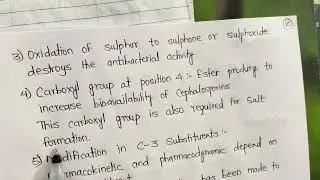 3) Oxidation of sulphur to sulphone or sulphoxide
destroys the antibacterial activity
4) Carboxyl group at position 4 :- Ester produrg to
increase bioavailability of Cephalosporins
This carboxyl group is also required for salt
formation.
5) Modification in C-3 Substituents :-
macokinetic and pharmacodynamic depend on
has been made to